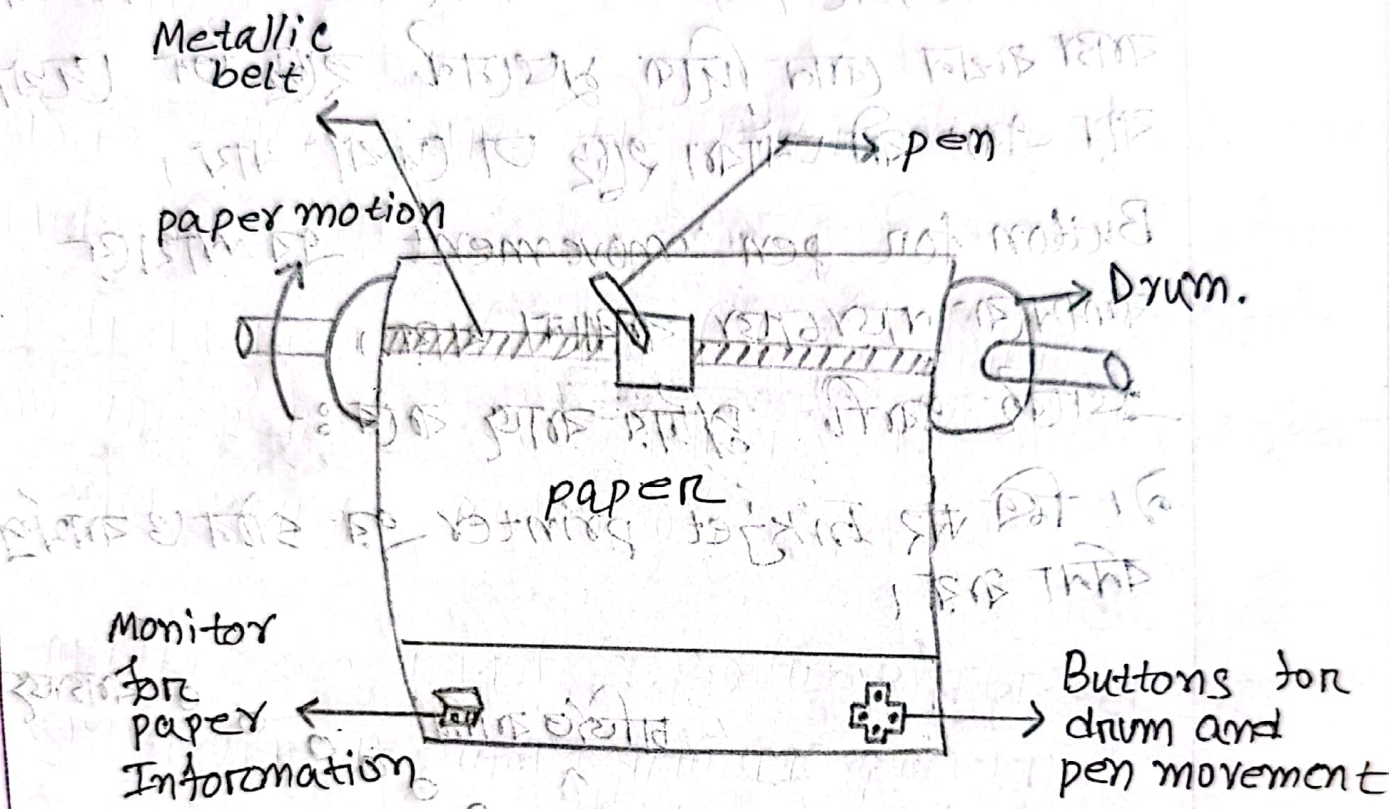 Metallic
belt
pen
paper motion
Drum.
paper
Monitor
for
paper
Information
Buttons for
drum and
pen movement